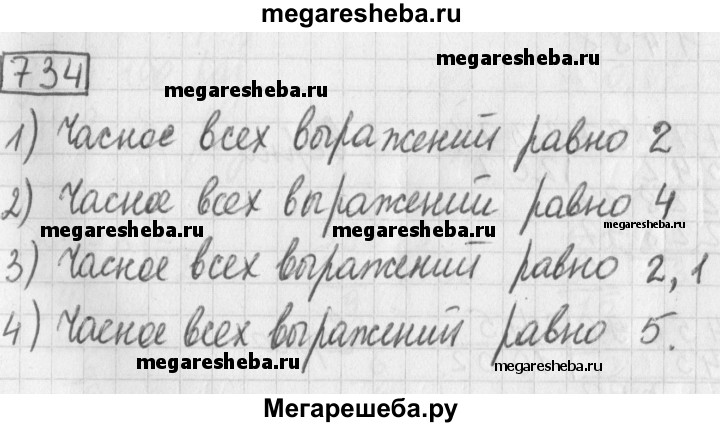 megaresheba.ru
734
megaresheba.ru
megaresheba.ru
1) Часное всех выражений равно 2
2) Часное всех выражений равно 4
megaresheba.ru
megaresheba.ru
megaresheba.ru
3) Часное всех выражений равно 2,1
4) Часное всех выражений равно 5.
megaresheba.ru
megaresheba.ru
Мегарешеба.ру